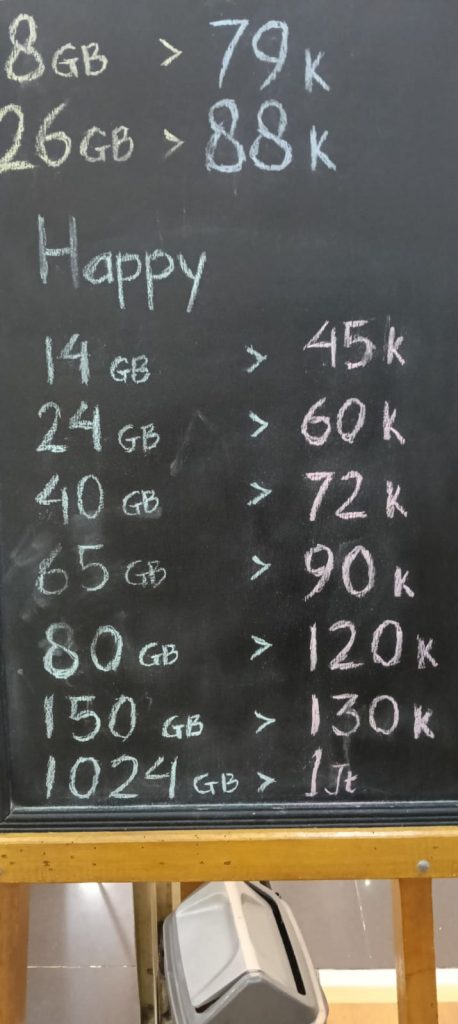 8GB > 79K
26GB > 88K
Happy
14 GB > 45K
24 GB > 60K
40 GB > 72K
65 GB > 90K
80 GB > 120K
150 GB > 130K
1024 GB > 1Jt